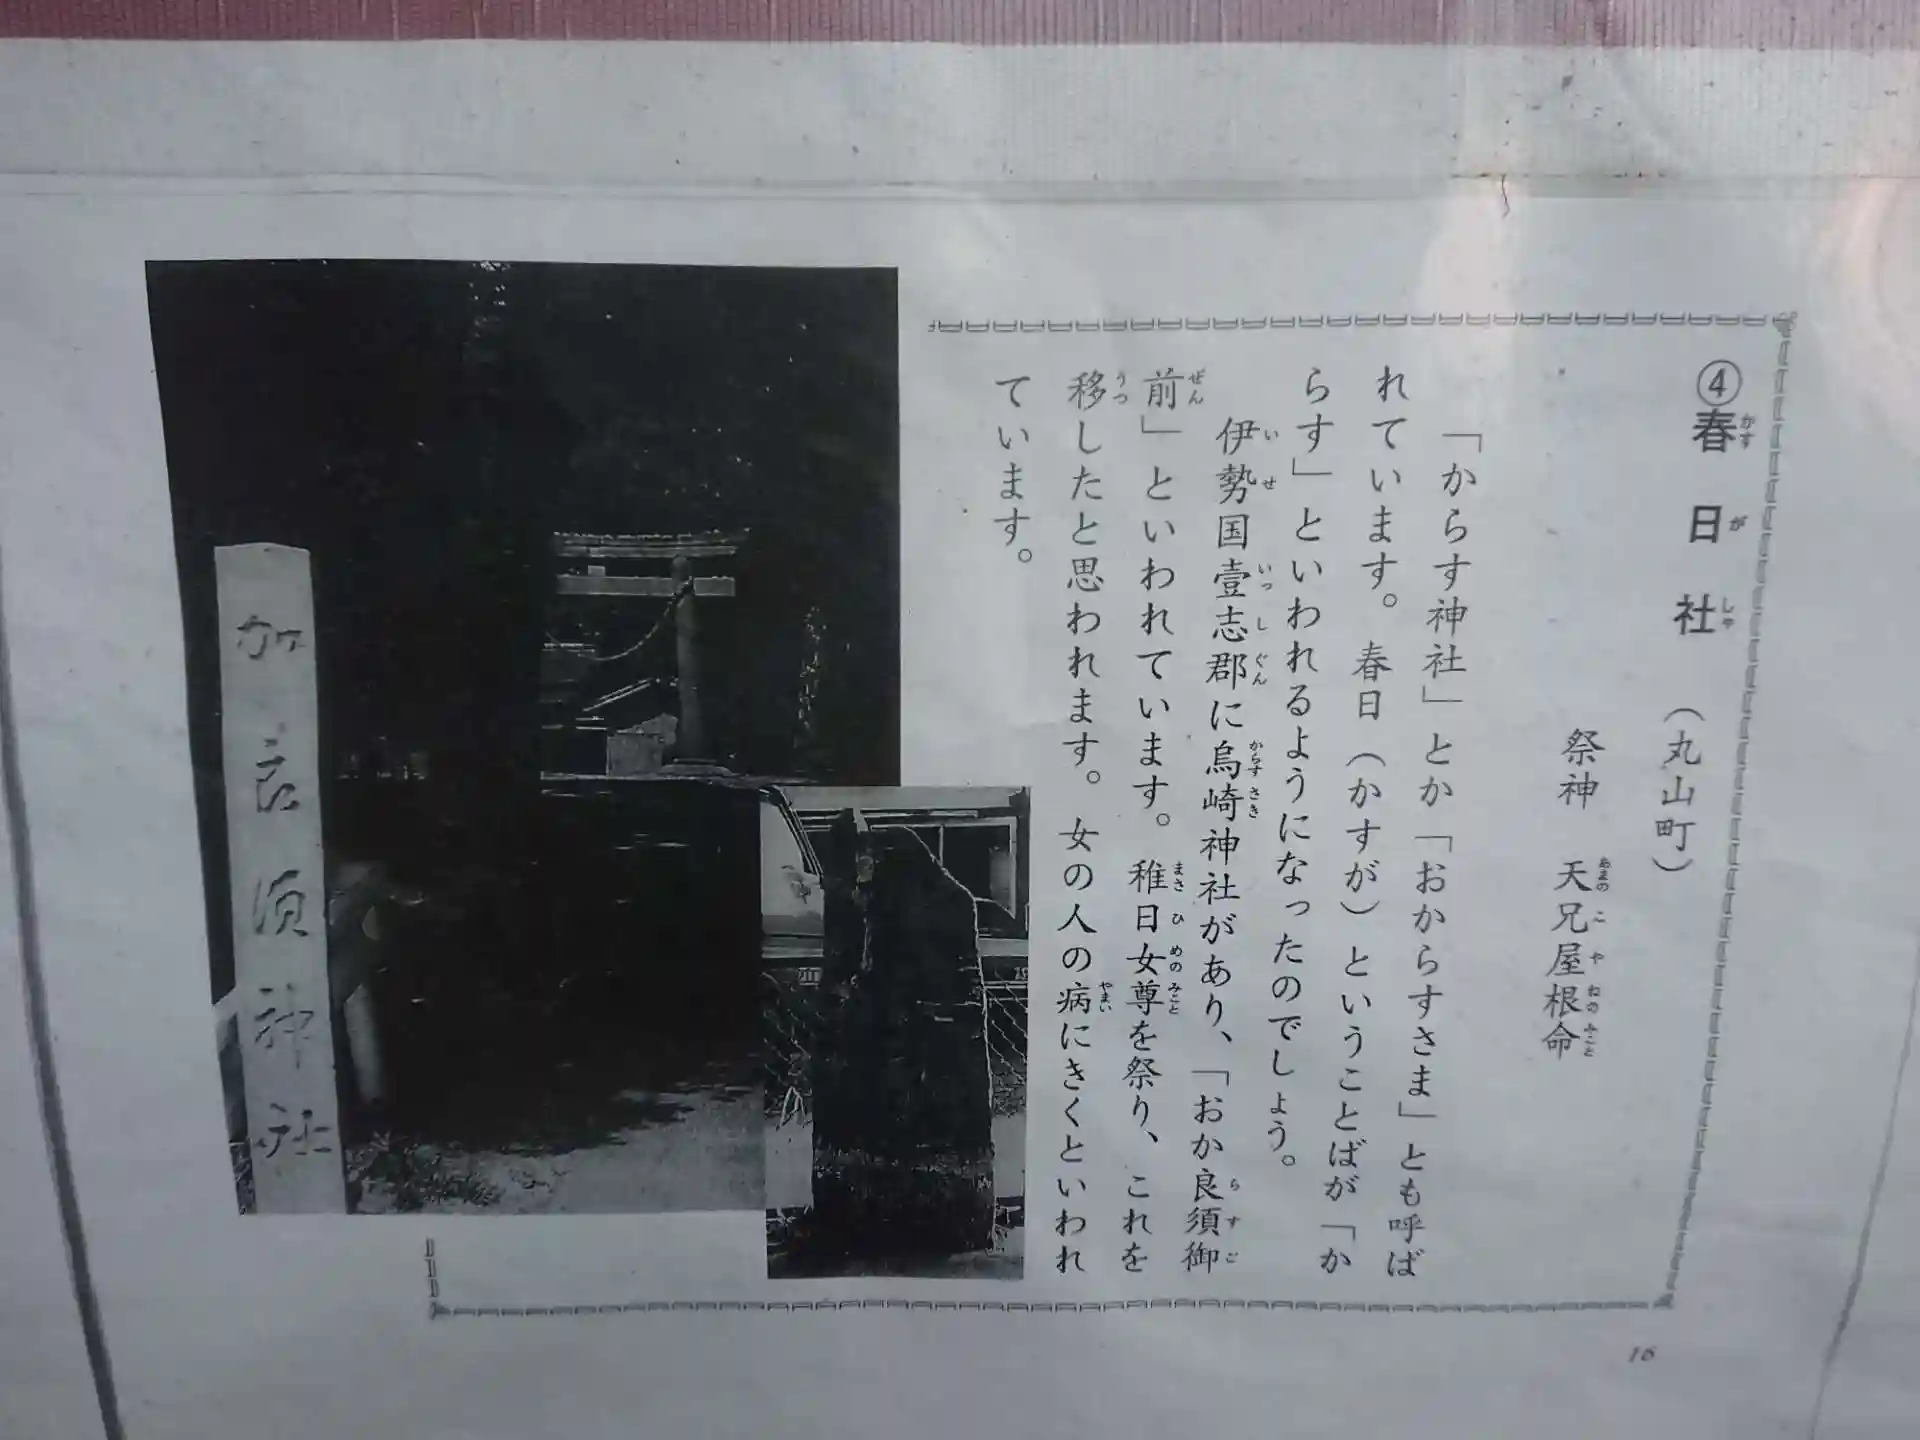 ④春日社 (丸山町)
祭神 天兄屋根命
「からす神社」とか「おからすさま」とも呼ば
れています。春日(かすが)ということばが「か
らす」といわれるようになったのでしょう。
伊勢国壹志郡に烏崎神社があり、「おか良須御
前」といわれています。稚日女尊を祭り、これを
移したと思われます。女の人の病にきくといわれ
ています。
加良須神社
16